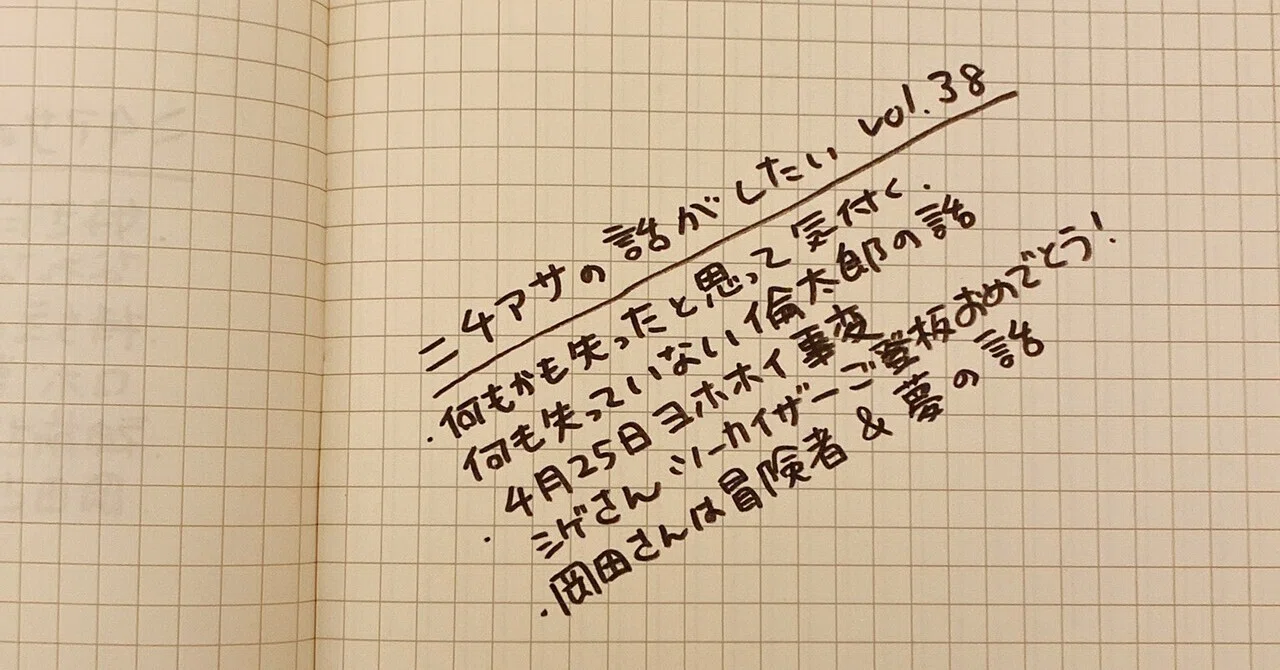 ニチアサの話がしたい vol.38
・何もかも失ったと思って気付く.
何も失っていない倫太郎の話
4月25日ヨホホイ事変
・ミゲさんシーカイザーご登板おめでとう!
・岡田さんは冒険者&夢の話